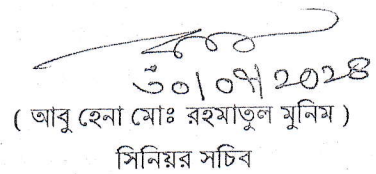 ৩০|০৭|২০২৪
( আবু হেনা মোঃ রহমাতুল মুনিম )
সিনিয়র সচিব